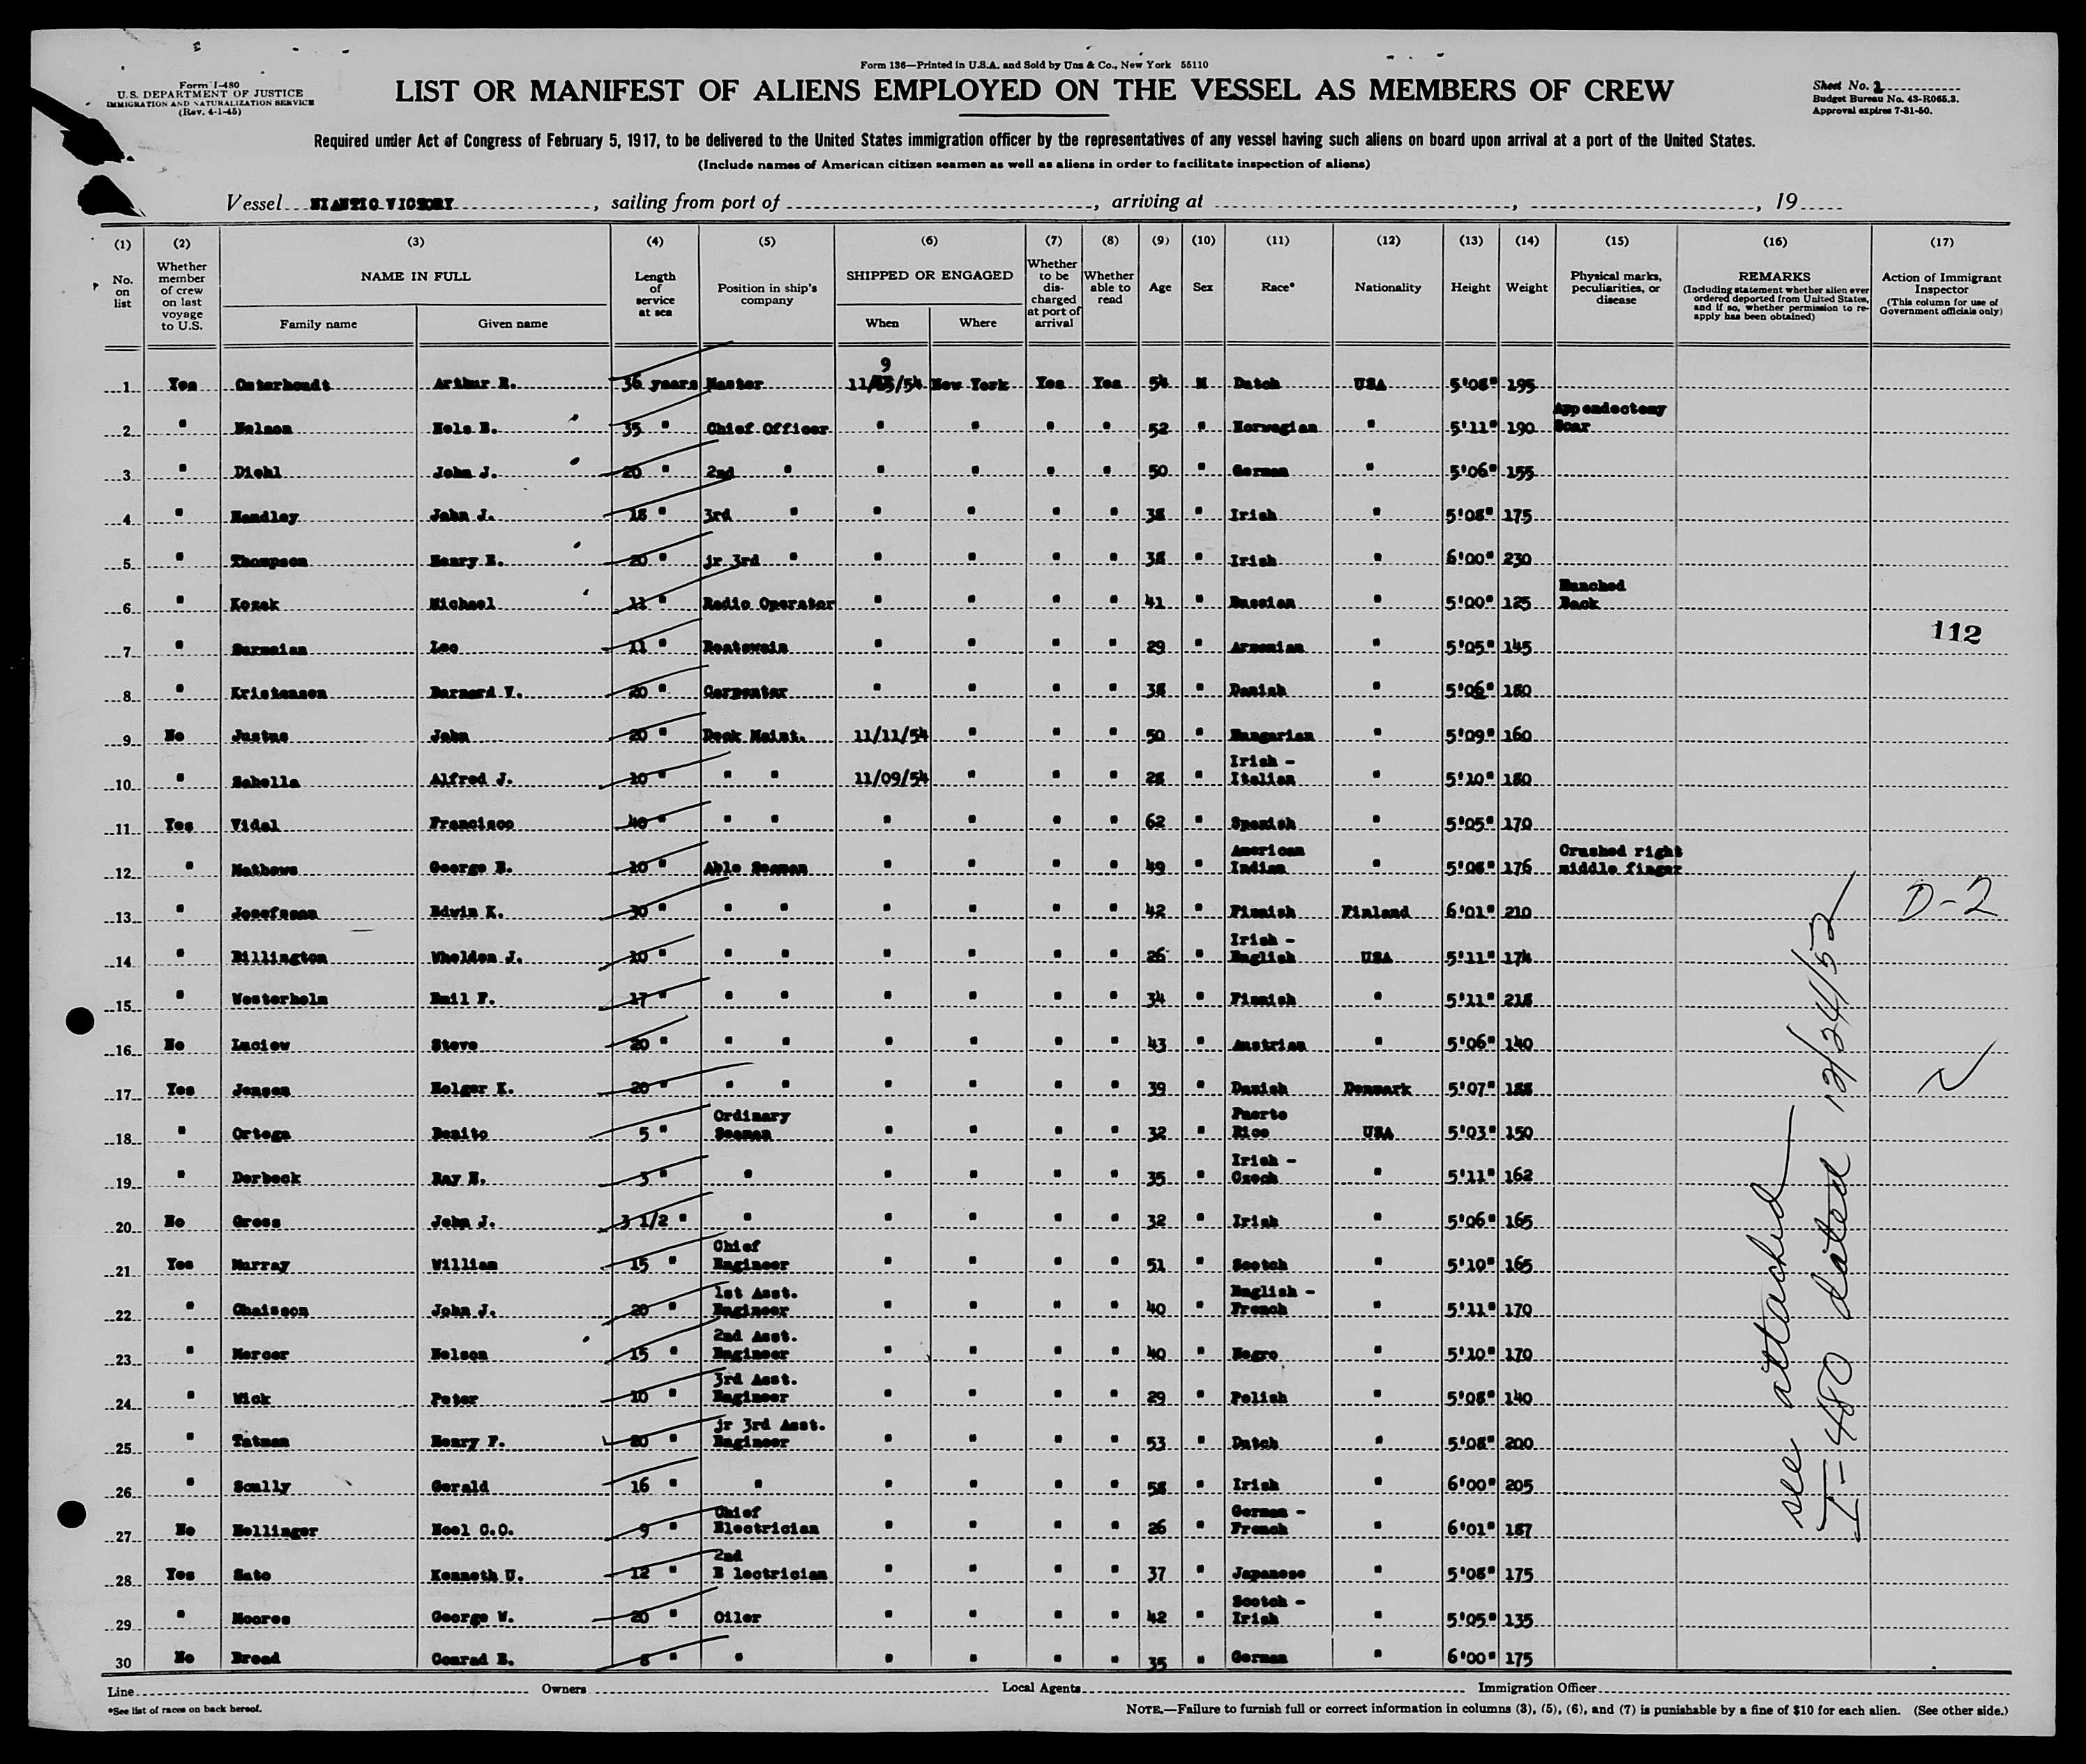 Form 136—Printed in U.S.A. and Sold by Unz & Co., New York 55110
Form I-480
U.S. DEPARTMENT OF JUSTICE
IMMIGRATION AND NATURALIZATION SERVICE
(Rev. 4-1-45)
LIST OR MANIFEST OF ALIENS EMPLOYED ON THE VESSEL AS MEMBERS OF CREW
Sheet No. 1
Budget Bureau No. 43-R065.3.
Approval expires 7-31-50.
Required under Act of Congress of February 5, 1917, to be delivered to the United States immigration officer by the representatives of any vessel having such aliens on board upon arrival at a port of the United States.
(Include names of American citizen seamen as well as aliens in order to facilitate inspection of aliens)
Vessel NIANTIC VICTORY, sailing from port of , arriving at , , 19
(1) (2) (3) (4) (5) (6) (7) (8) (9) (10) (11) (12) (13) (14) (15) (16) (17)
No. on list
Whether member of crew on last voyage to U.S.
NAME IN FULL
Family name Given name
Length of service at sea
Position in ship's company
SHIPPED OR ENGAGED
When Where
Whether to be discharged at port of arrival
Whether able to read
Age Sex Race* Nationality Height Weight
Physical marks, peculiarities, or disease
REMARKS
(Including statement whether alien ever ordered deported from United States, and if so, whether permission to re-apply has been obtained)
Action of Immigrant Inspector
(This column for use of Government officials only)
1 Yes Osterhoudt Arthur R. 36 years Master 11/9/54 New York Yes Yes 54 M Dutch USA 5'08" 195
2 " Nelson Nels B. 35 " Chief Officer " " " " 52 " Norwegian " 5'11" 190 Appendectomy Scar
3 " Diehl John J. 20 " 2nd " " " " " 50 " German " 5'06" 155
4 " Handley John J. 18 " 3rd " " " " " 38 " Irish " 5'08" 175
5 " Thompson Henry E. 20 " jr 3rd " " " " " 38 " Irish " 6'00" 230
6 " Kozak Michael 11 " Radio Operator " " " " 41 " Russian " 5'00" 125 Hunched Back
7 " Surmaian Leo 11 " Boatswain " " " " 29 " Armenian " 5'05" 145 112
8 " Kristensen Barnard V. 20 " Carpenter " " " " 38 " Danish " 5'06" 180
9 No Justus John 20 " Deck Maint. 11/11/54 " " " 50 " Hungarian " 5'09" 160
10 " Sabella Alfred J. 10 " " " 11/09/54 " " " 28 " Irish - Italian " 5'10" 180
11 Yes Vidal Francisco 40 " " " " " " " 62 " Spanish " 5'05" 170
12 " Mathews George B. 10 " Able Seaman " " " " 49 " American Indian " 5'08" 176 Crushed right middle finger
13 " Josefsson Edwin K. 30 " " " " " " " 42 " Finnish Finland 6'01" 210 D-2
14 " Billington Wheldon J. 10 " " " " " " " 26 " Irish - English USA 5'11" 174
15 " Westerholm Emil F. 17 " " " " " " " 34 " Finnish " 5'11" 218
16 No Luciew Steve 20 " " " " " " " 43 " Austrian " 5'06" 140
17 Yes Jensen Holger K. 20 " " " " " " " 39 " Danish Denmark 5'07" 188
18 " Ortega Benito 5 " Ordinary Seaman " " " " 32 " Puerto Rico USA 5'03" 150
19 " Derbeck Ray E. 3 " " " " " " 35 " Irish - Czech " 5'11" 162
20 No Gross John J. 3 1/2 " " " " " " 32 " Irish " 5'06" 165
21 Yes Murray William 15 " Chief Engineer " " " " 51 " Scotch " 5'10" 165
22 " Chaisson John J. 20 " 1st Asst. Engineer " " " " 40 " English - French " 5'11" 170
23 " Mercer Nelson 15 " 2nd Asst. Engineer " " " " 40 " Negro " 5'10" 170
24 " Wick Peter 10 " 3rd Asst. Engineer " " " " 29 " Polish " 5'08" 140
25 " Tatman Henry F. 20 " jr 3rd Asst. Engineer " " " " 53 " Dutch " 5'08" 200
26 " Scully Gerald 16 " " " " " " 58 " Irish " 6'00" 205
27 No Hollinger Noel C.O. 9 " Chief Electrician " " " " 26 " German - French " 6'01" 187
28 Yes Sato Kenneth U. 12 " 2nd E lectrician " " " " 37 " Japanese " 5'08" 175
29 " Moores George W. 20 " Oiler " " " " 42 " Scotch - Irish " 5'05" 135
30 No Broad Conrad E. 8 " " " " " " 35 " German " 6'00" 175
see attached
I-480 dated 12/24/53
Line Owners Local Agents Immigration Officer
*See list of races on back hereof.
NOTE.—Failure to furnish full or correct information in columns (3), (5), (6), and (7) is punishable by a fine of $10 for each alien. (See other side.)